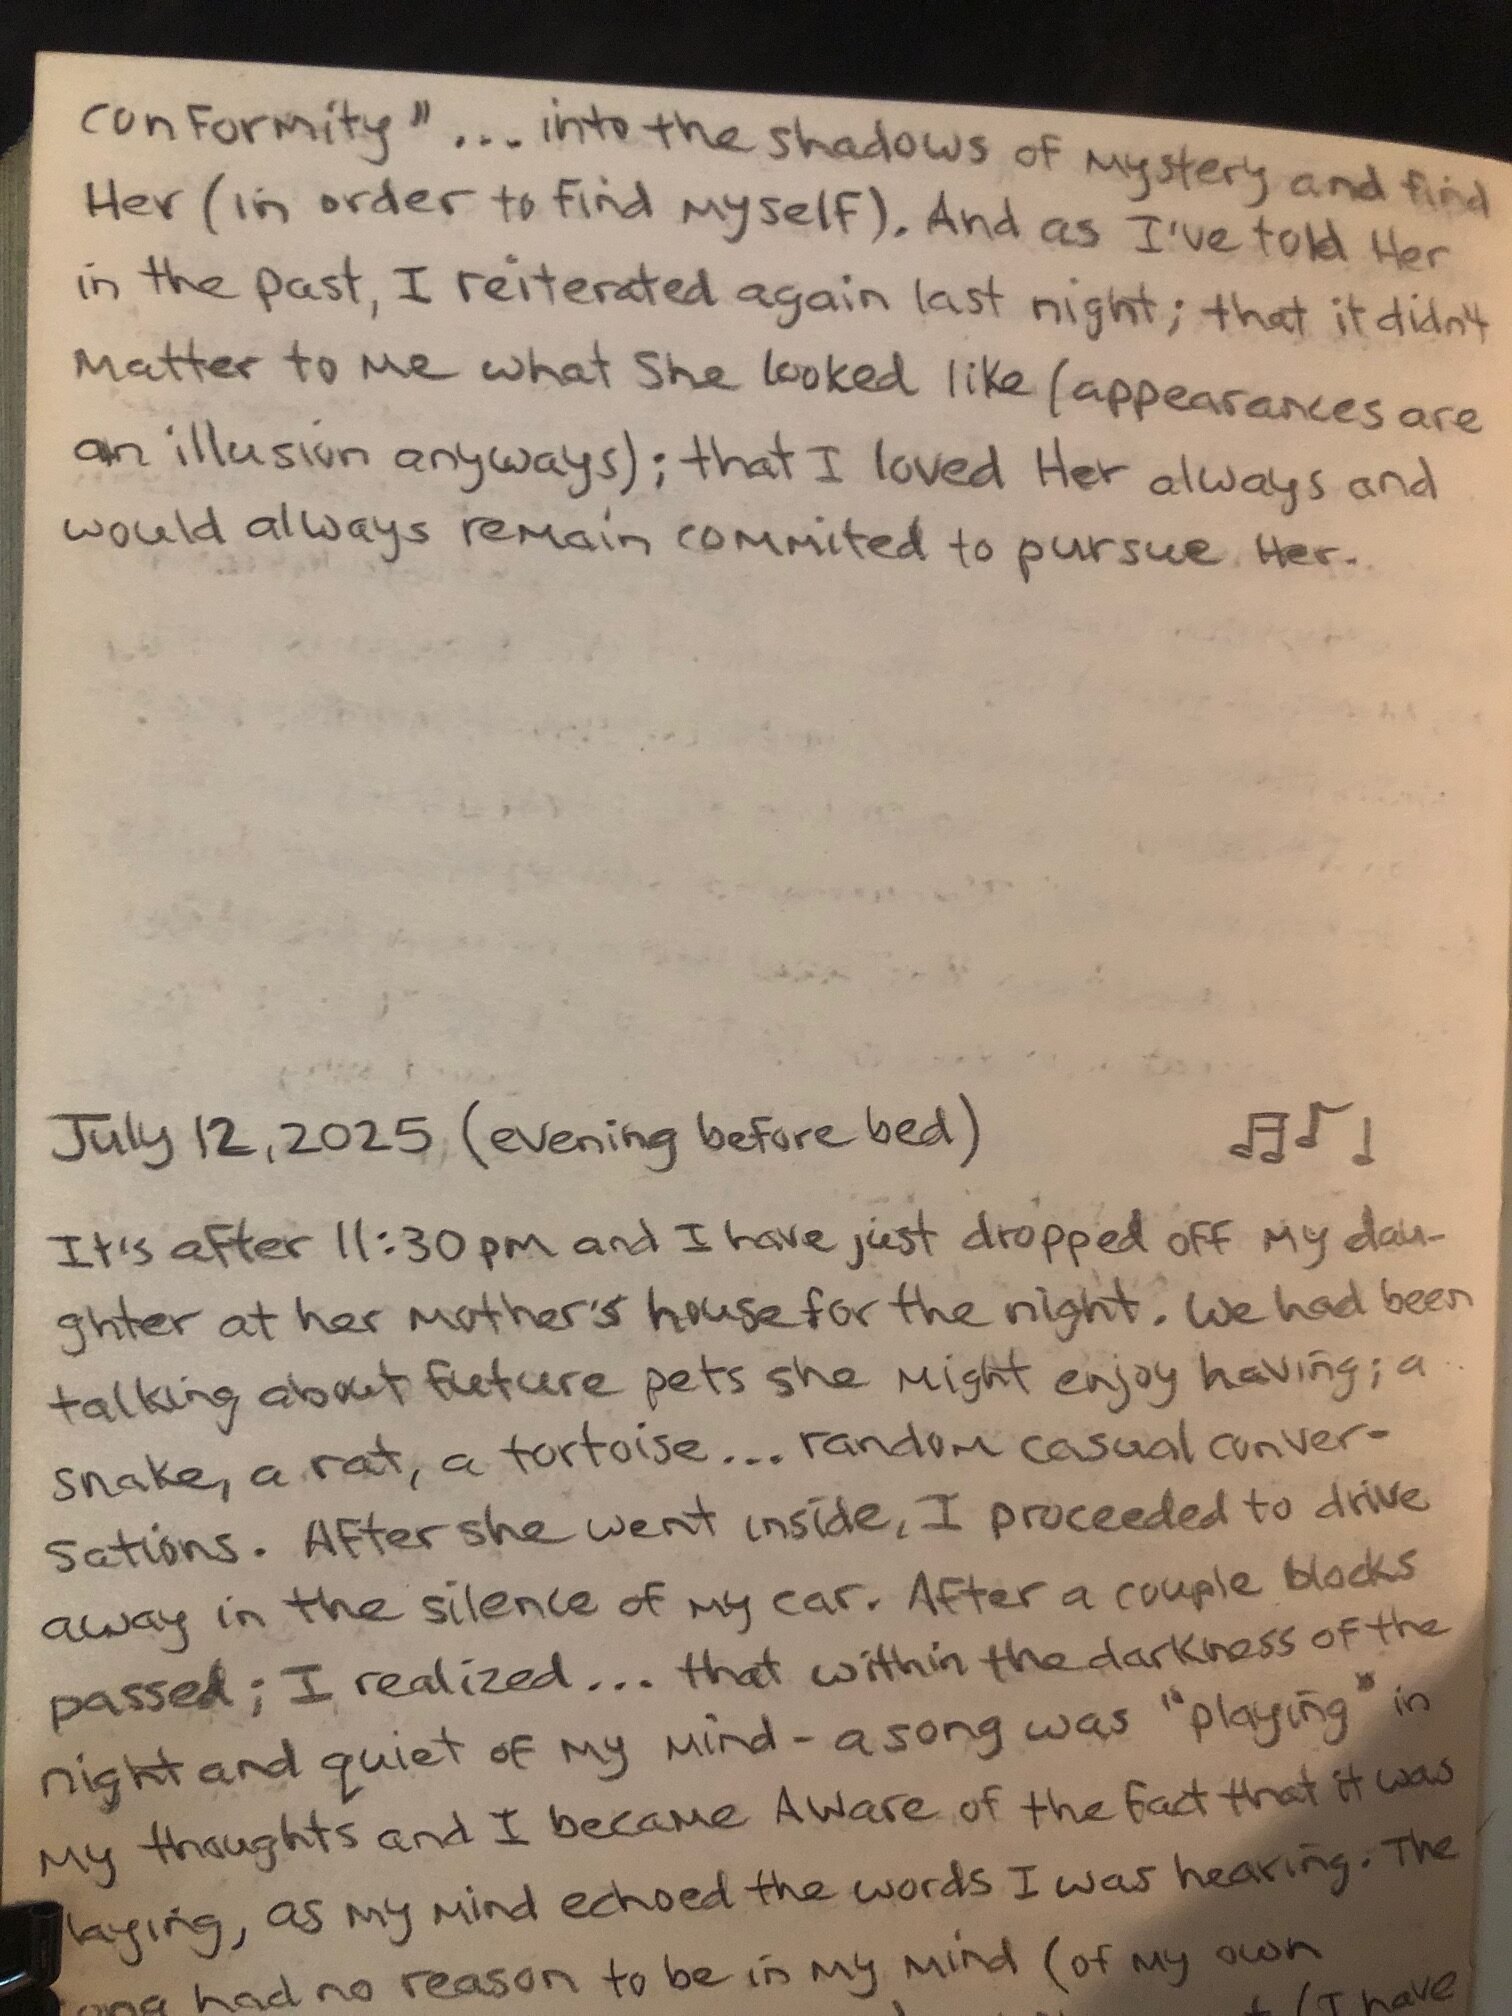 conformity" ... into the shadows of mystery and find
Her (in order to find myself). And as I've told Her
in the past, I reiterated again last night; that it didn't
matter to me what She looked like (appearances are
an illusion anyways); that I loved Her always and
would always remain commited to pursue Her.
July 12, 2025 (evening before bed)
It's after 11:30pm and I have just dropped off my dau-
ghter at her mother's house for the night. We had been
talking about future pets she might enjoy having; a
snake, a rat, a tortoise... random casual conver-
sations. After she went inside, I proceeded to drive
away in the silence of my car. After a couple blocks
passed; I realized... that within the darkness of the
night and quiet of my mind - a song was "playing" in
my thoughts and I became Aware of the fact that it was
laying, as my mind echoed the words I was hearing. The
ong had no reason to be in my mind (of my own
(I have